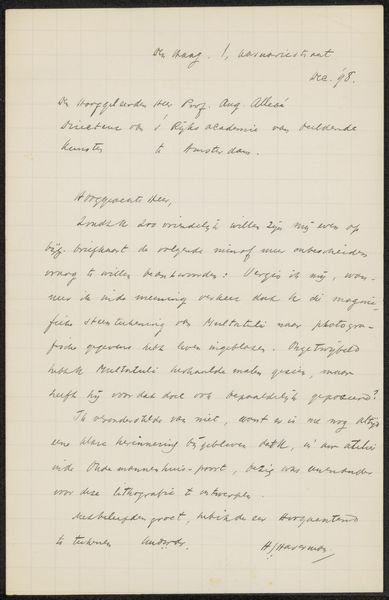 Den Haag. 1, Casuariestraat
Dec. '98.
Den Hooggeleerden Heer Prof. Aug. Allebé
Directeur van 's Rijks academie van beeldende
Kunsten te Amsterdam.
Hooggeachte Heer,
Zoudt U zoo vriendelijk willen zijn mij even op
bijg. briefkaart de volgende min of meer onbescheiden
vraag te willen beantwoorden: Vergis ik mij, wan-
neer ik in de meening verkeer dat U die magni-
fieke steenteekening van Multatuli naar photogra-
fische gegevens hebt leven ingeblazen. Ongetwijfeld
hebt U Multatuli herhaalde malen gezien, maar
heeft hij voor dat doel ook bepaaldelijk geposeerd?
Ik veronderstelde van niet, want er is me nog altijd
eene klare herinnering bijgebleven dat U, in uw atelier
in de Oude mannenhuis-poort, bezig was
voor deze lithografie te ontwerpen.
Met beleefden groet, heb ik de eer Hoogachtend
te teekenen
HJHaverman.